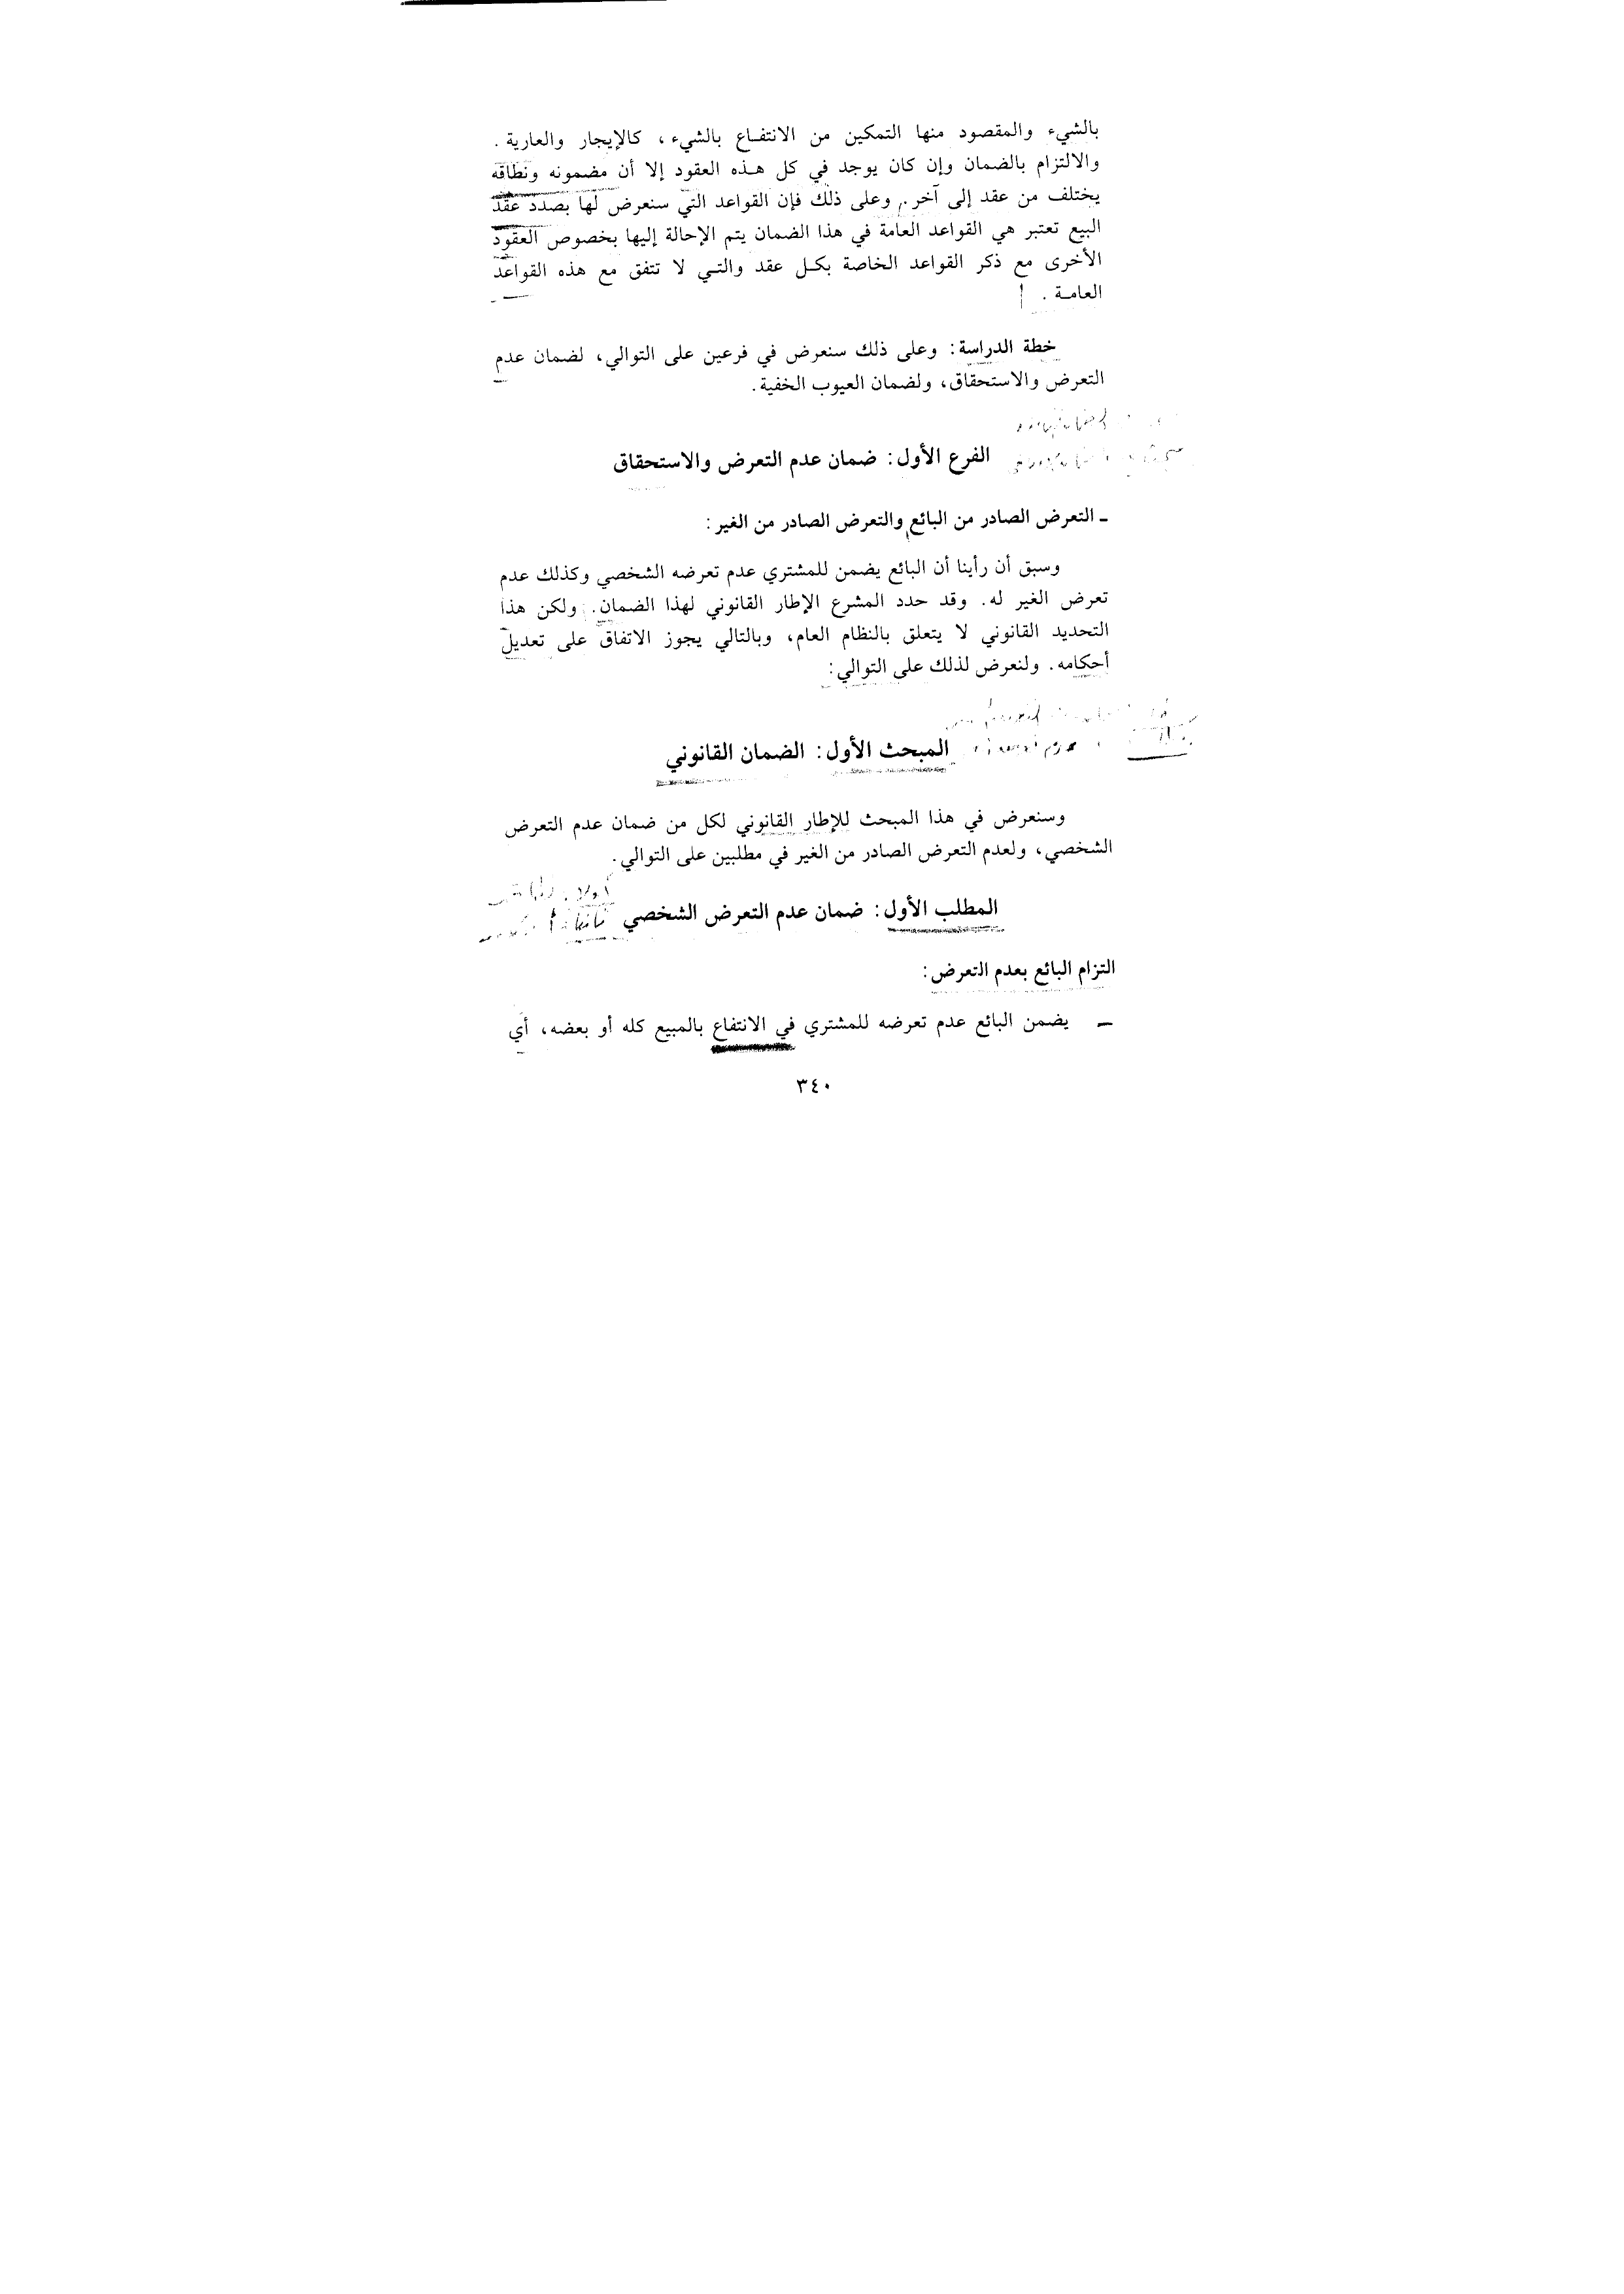 بالشيء والمقصود منها التمكين من الانتفـاع بالشيء، كالإيجار والعارية.
والالتزام بالضمان وإن كان يوجد في كل هـذه العقود إلا أن مضمونه ونطاقه
يختلف من عقد إلى آخر. وعلى ذلك فإن القواعد التي سنعرض لها بصدد عقد
البيع تعتبر هي القواعد العامة في هذا الضمان يتم الإحالة إليها بخصوص العقود
الأخرى مع ذكر القواعد الخاصة بكـل عقد والتـي لا تتفق مع هذه القواعد
العامـة.
خطة الدراسة: وعلى ذلك سنعرض في فرعين على التوالي، لضمان عدم
التعرض والاستحقاق، ولضمان العيوب الخفية.
الفرع الأول: ضمان عدم التعرض والاستحقاق
ـ التعرض الصادر من البائع والتعرض الصادر من الغير:
وسبق أن رأينا أن البائع يضمن للمشتري عدم تعرضه الشخصي وكذلك عدم
تعرض الغير له. وقد حدد المشرع الإطار القانوني لهذا الضمان. ولكن هذا
التحديد القانوني لا يتعلق بالنظام العام، وبالتالي يجوز الاتفاق على تعديل
أحكامه. ولنعرض لذلك على التوالي:
المبحث الأول: الضمان القانوني
وسنعرض في هذا المبحث للإطار القانوني لكل من ضمان عدم التعرض
الشخصي، ولعدم التعرض الصادر من الغير في مطلبين على التوالي.
المطلب الأول: ضمان عدم التعرض الشخصي
التزام البائع بعدم التعرض:
ـ يضمن البائع عدم تعرضه للمشتري في الانتفاع بالمبيع كله أو بعضه، أي
٣٤٠